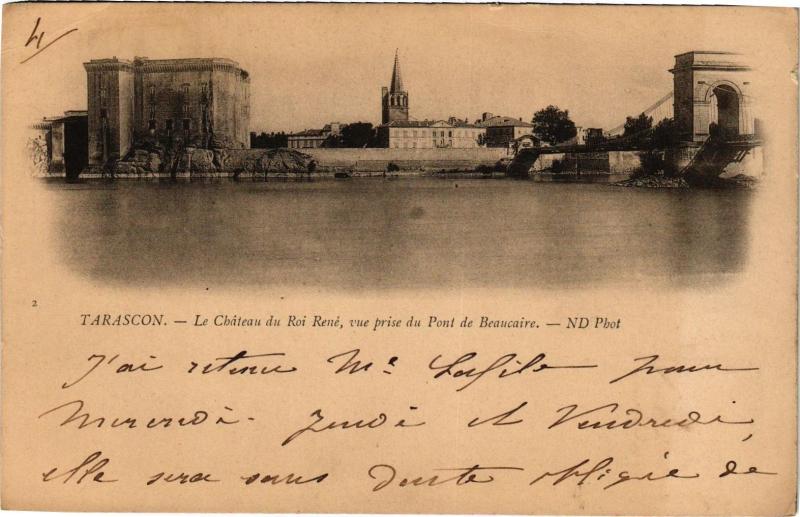 4
2
TARASCON. — Le Château du Roi René, vue prise du Pont de Beaucaire. — ND Phot
J'ai retenu Me Lafile pour
Mercredi - Jeudi et Vendredi,
elle sera sans doute obligée de